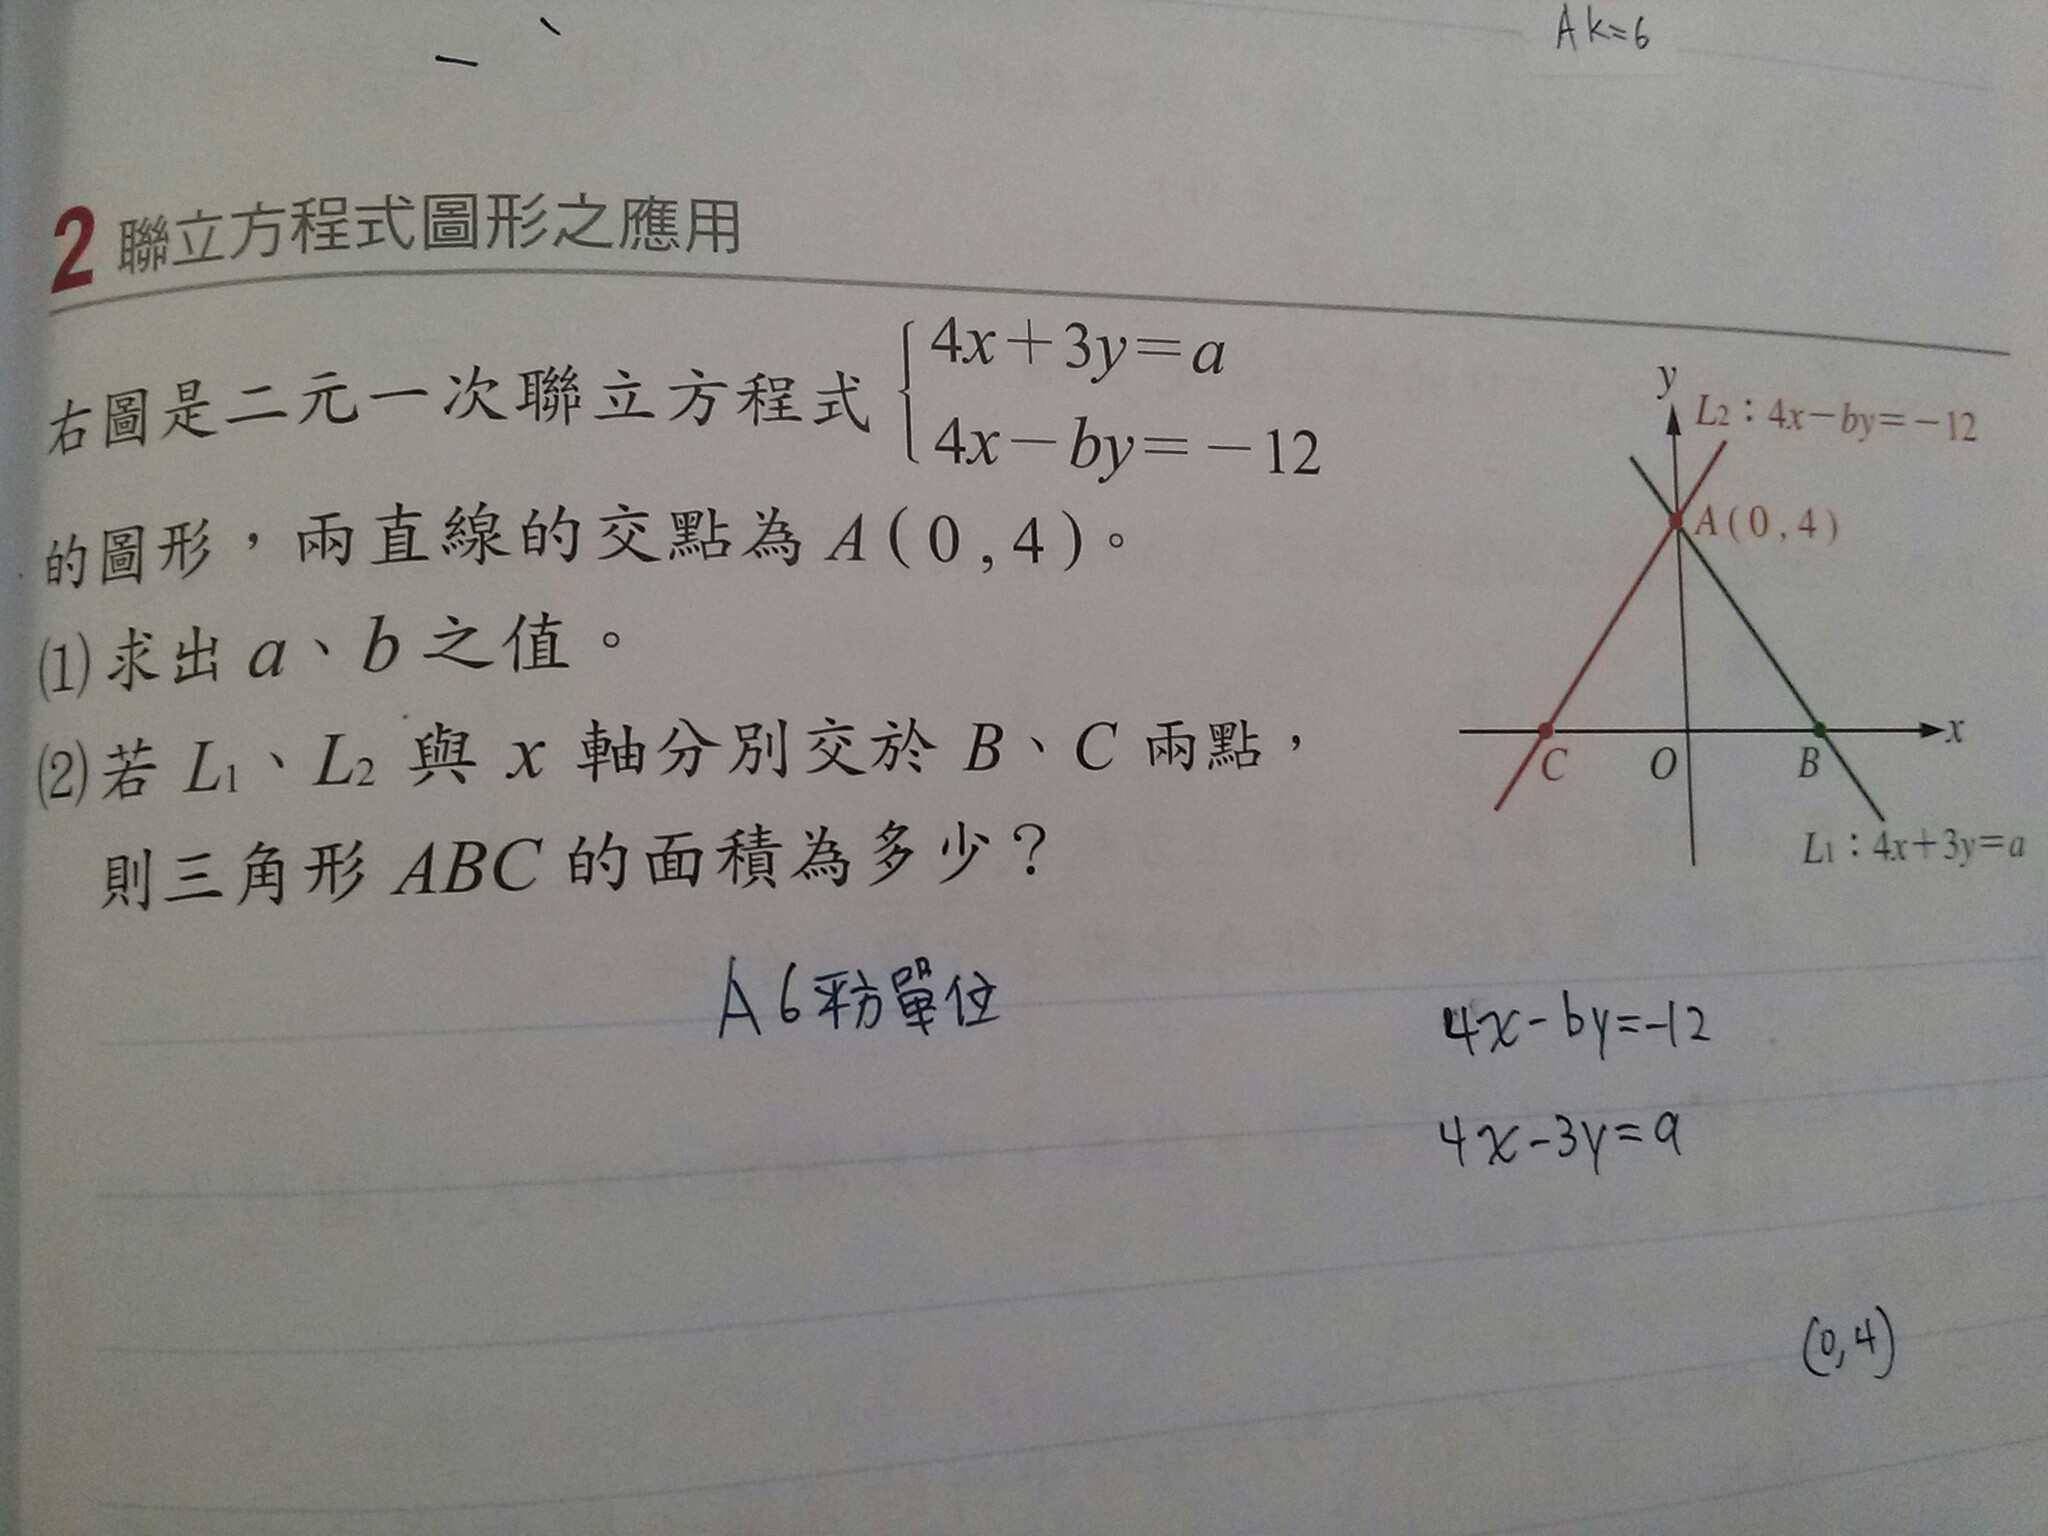 Ak=6
2 聯立方程式圖形之應用
右圖是二元一次聯立方程式 { 4x+3y=a
4x-by=-12
的圖形,兩直線的交點為 A(0,4)。
(1)求出 a、b 之值。
(2)若 L1、L2 與 x 軸分別交於 B、C 兩點,
則三角形 ABC 的面積為多少?
y
L2:4x-by=-12
A(0,4)
x
C
O
B
L1:4x+3y=a
A 6平方單位
4x-by=-12
4x-3y=a
(0,4)